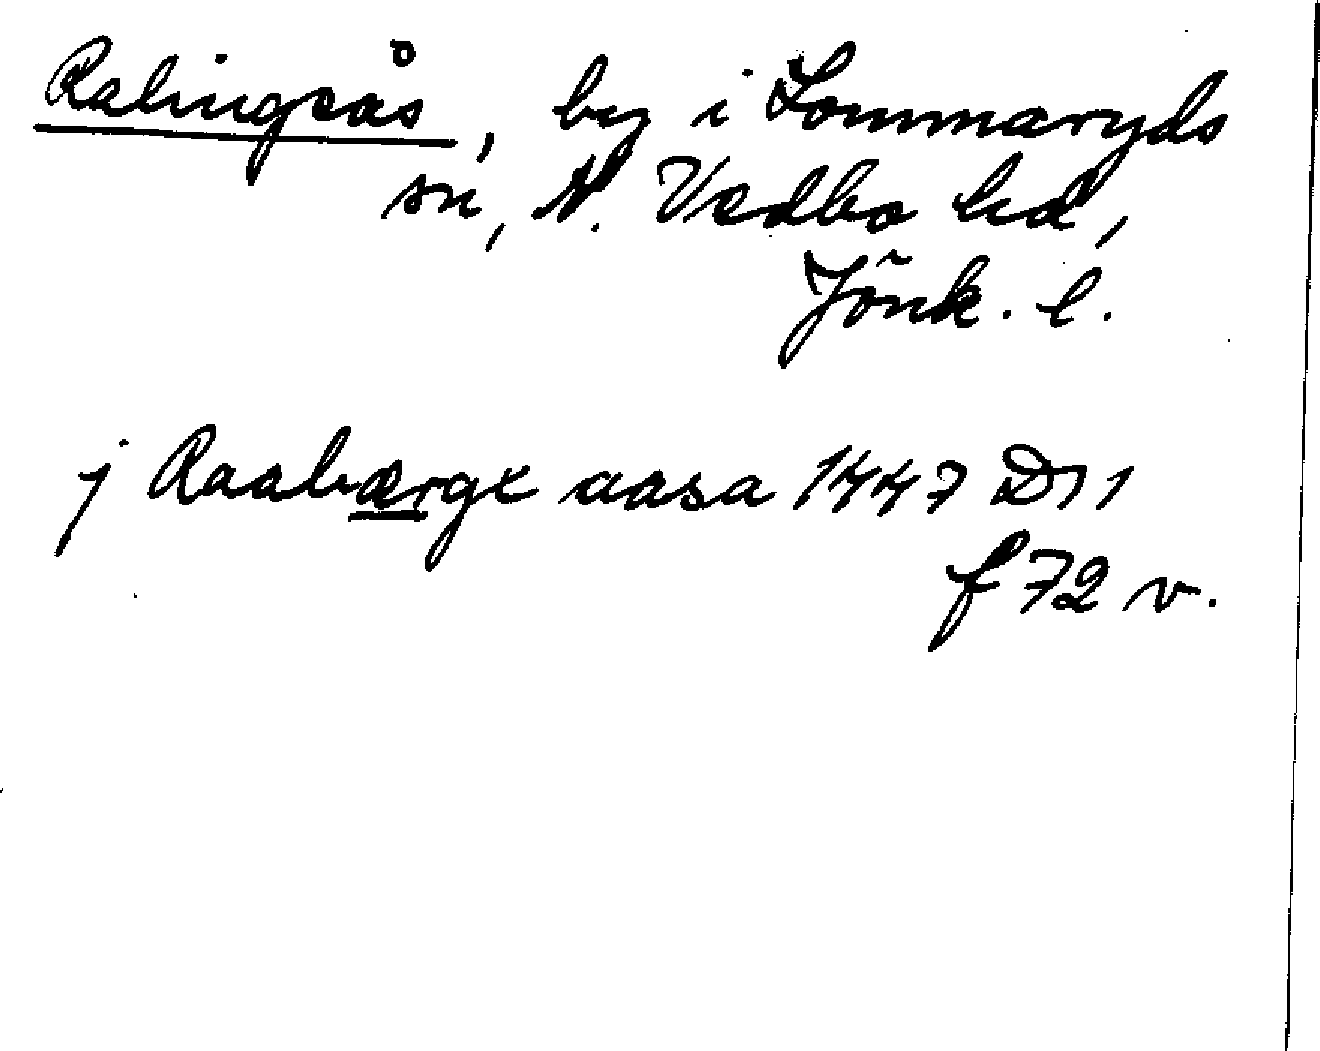 Ralingsås, by i Lommaryds
sn, N. Vedbo hd,
Jönk. l.
j Raabærge aasa 1447 D 11
f 72 v.